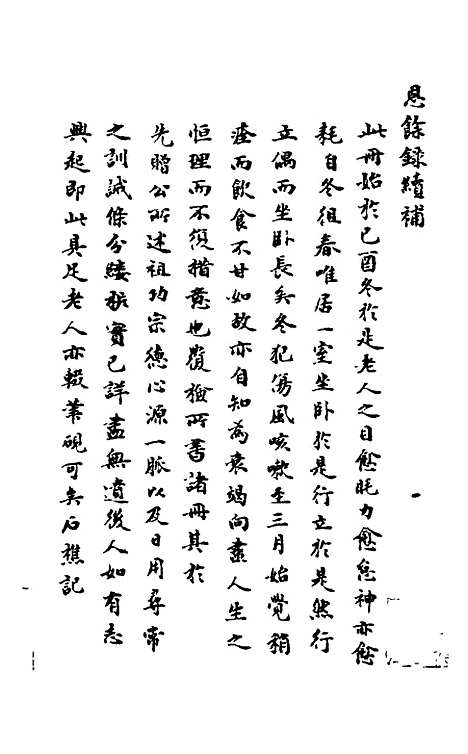 恩餘錄續補
此冊始於己酉冬於是老人之目愈眊力愈怠神亦愈
耗自冬徂春唯居一室坐卧於是行立於是然行
立偶而坐卧長矣冬犯傷風咳嗽至三月始覺稍
痊而飲食不甘如故亦自知為衰竭向盡人生之
恒理而不須措意也覆檢所書諸冊其於
先贈公所述祖功宗德心源一脈以及日用尋常
之訓誡條分縷析實已詳盡無遺後人如有志
興起即此具足老人亦輟筆硯可矣石樵記